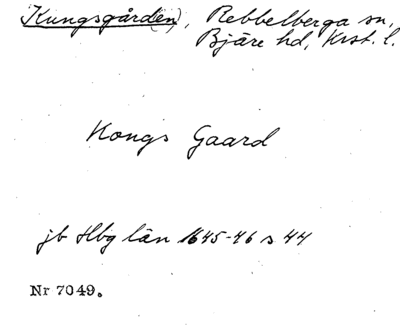 Kungsgård(en), Rebbelberga sn,
Bjäre hd, Krst. l.
Kongs Gaard
jb Hbg län 1645-46 s 44
Nr 7049.